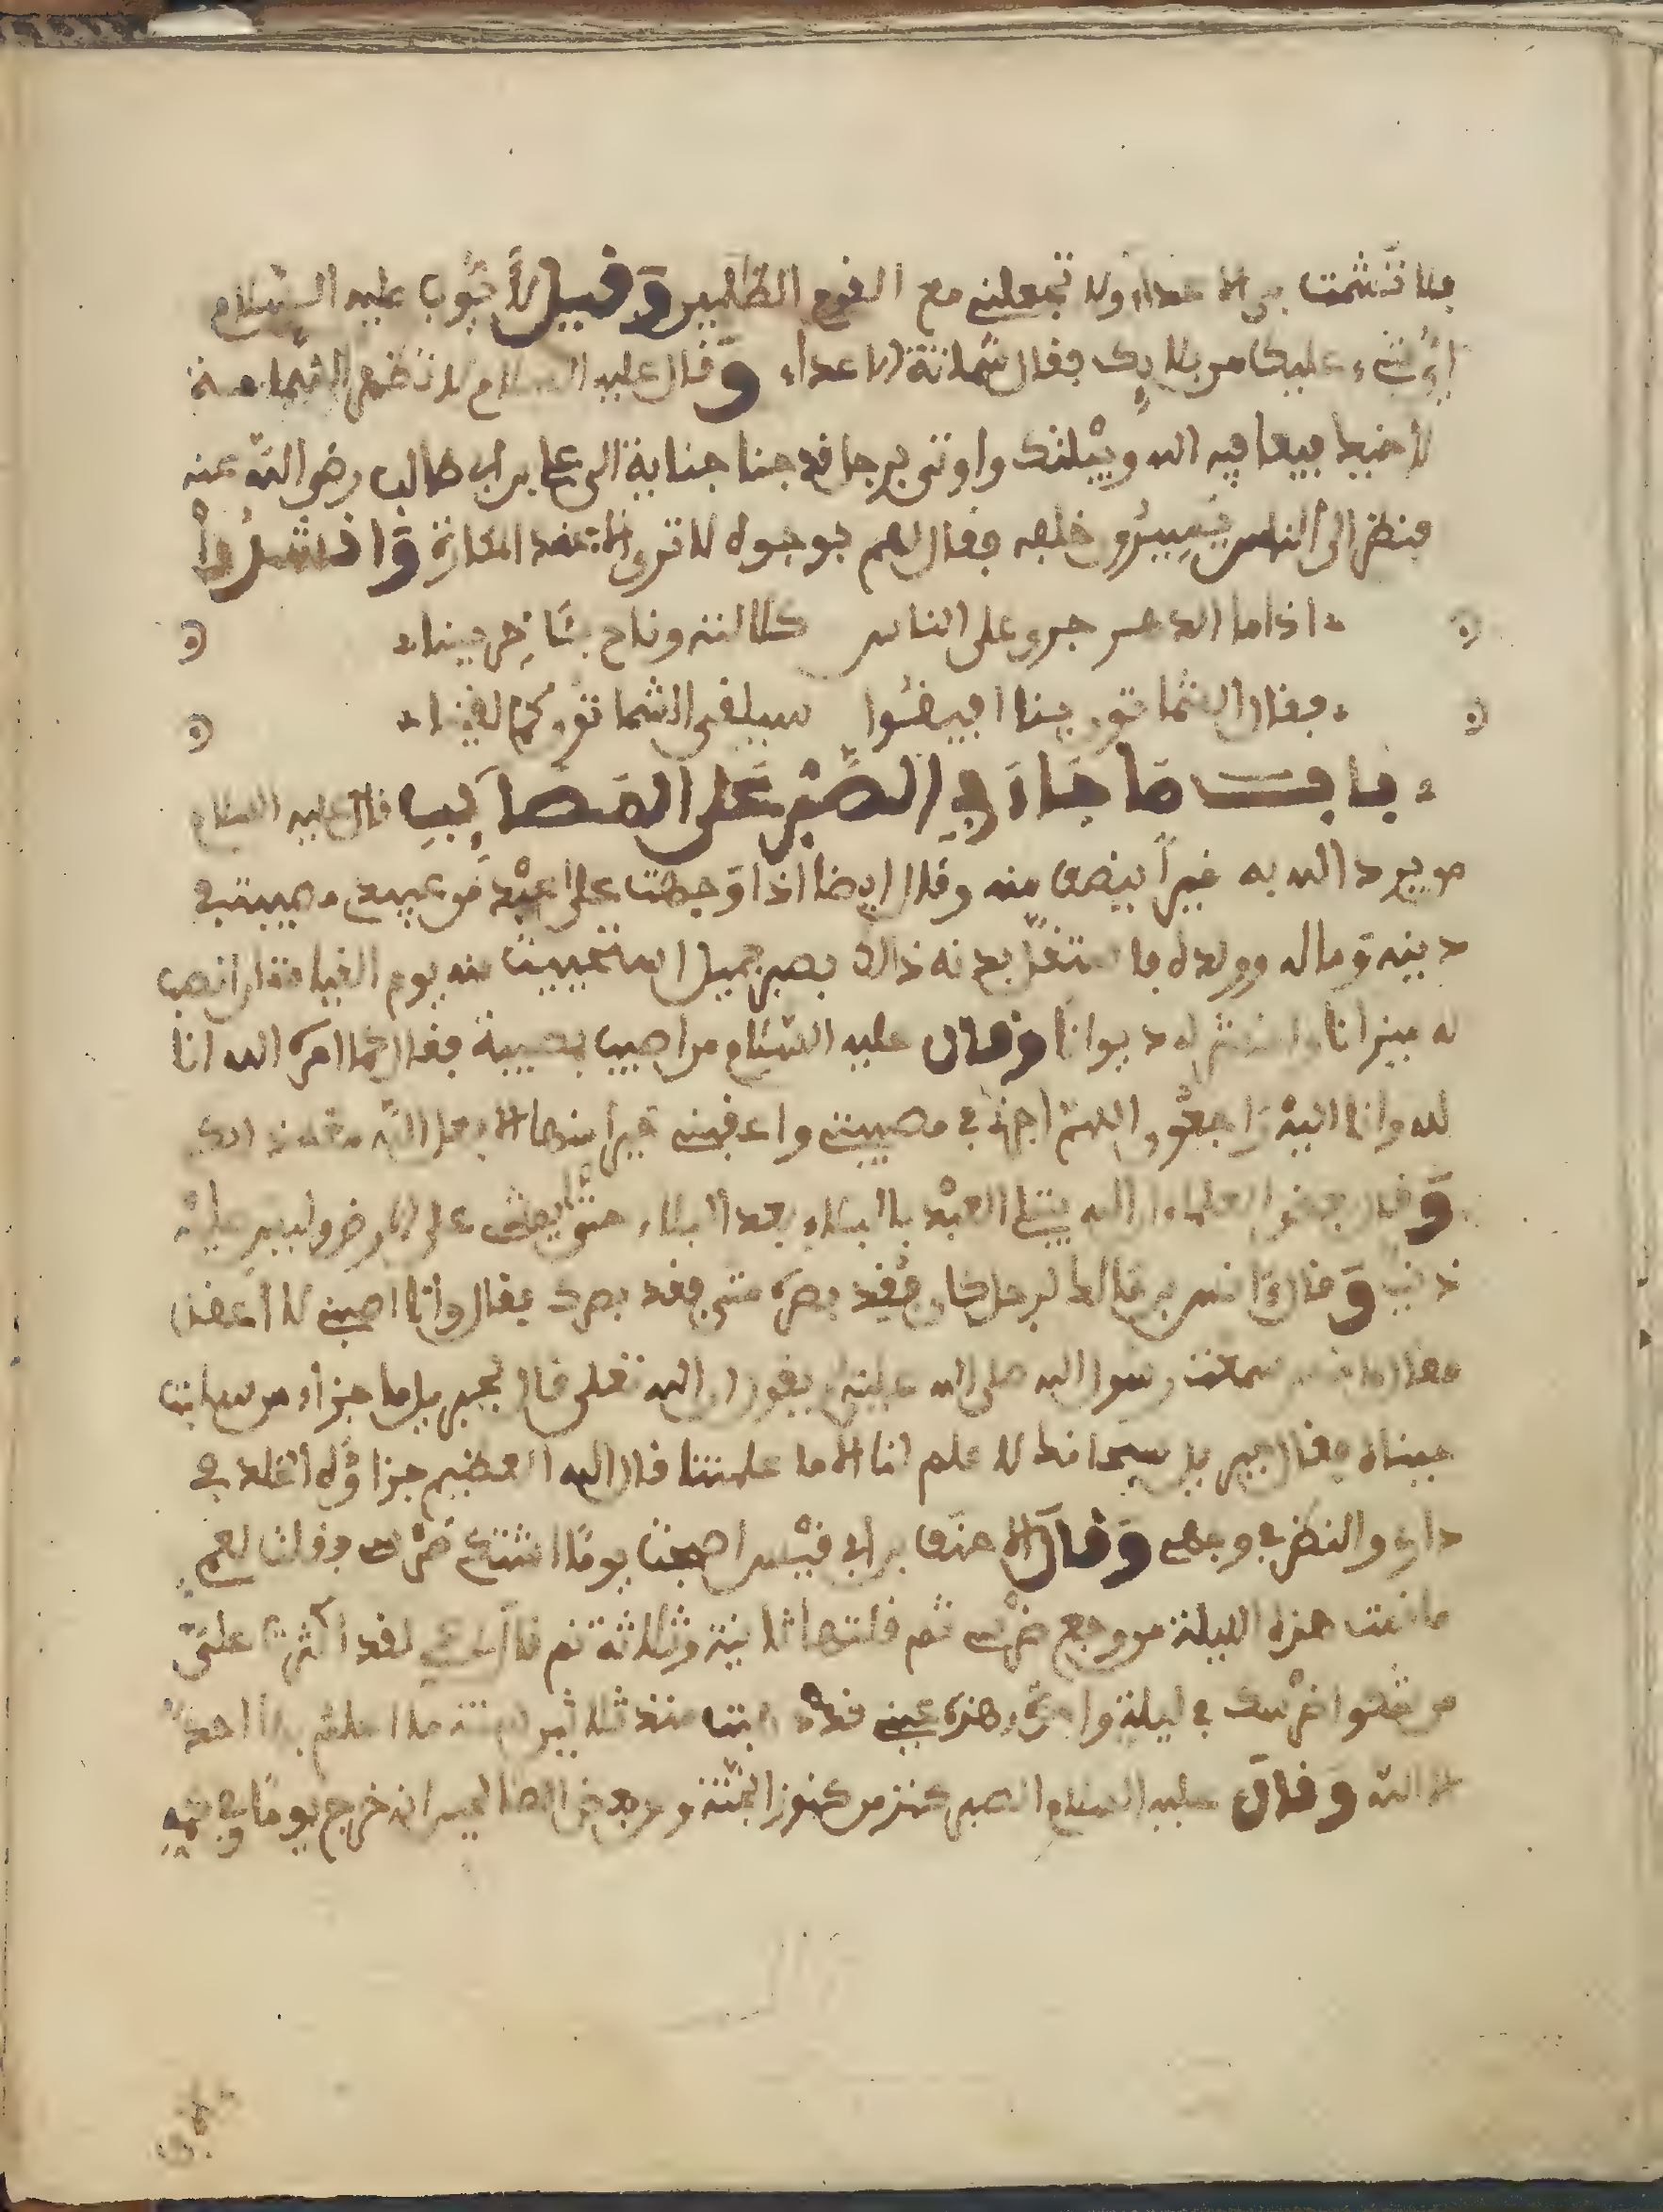 فلا تشمت بي الاعداء ولا تجعلني مع القوم الظلمين وقيل لأيوب عليه السلام
اي شيء عليك من بلايك فقال شماتة الاعداء وقال عليه السلام لا تظهر الشماتة
لاخيك فيعافيه الله ويبتليك واوتي برجل قد جنا جناية الى علي بن ابي طالب رضي الله عنه
فنظر الى الناس يسيرون خلفه فقال لهم بوجوه لا ترى الا عند المكاره وانشدوا
اذا ما الدهر جر على الناس كلاكله وناح بئاخرينا
فقل للشامتون بنا افيقوا سيلقى الشامتون كما لقينا
باب ما جاء في الصبر على المصايب قال عليه السلام
من يرد الله به خيرا يصب منه وقال ايضا اذا وجهت على عبد من عبيدي مصيبة في
دينه وماله وولده فاستقبل بدنه ذالك بصبر جميل استحييت منه يوم القيامة ان انصب
له ميزانا وانشر له ديوانا وقال عليه السلام من اصيب بمصيبة فقال كما امره الله انا
لله وانا اليه راجعون اللهم اجرني في مصيبتي واعقبني خيرا منها الا فعل الله معه ذالك
وقال بعض العلماء ان الله يبتلي العبد بالبلاء بعد البلاء حتى يمشي على الارض وليس عليه
ذنب وقال انس بن مالك لرجل كان فقد بصره متى فقد بصرك فقال وانا صبي لا اعقل
فقال انس سمعت رسول الله صلى الله عليه يقول ان الله تعلى قال لجبريل ما جزاء من سلبت
حبيباه فقال جبريل سبحانك لا علم لنا الا ما علمتنا قال الله العظيم جزاؤه الخلد في
داري والنظر في وجهي وقال الاحنف بن ابي قيس اصبحت يوما اشتكي ضرسي فقلت لعمي
ما نمت هذه الليلة من وجع ضرسي ثم قلتها ثانية وثالثة ثم قال لي لقد اكثرت علي
من شكوا ضرسك في ليلة واحدة وهذه عيني قد ذهبت منذ ثلاثين سنة ما اعلم بها احد
الا الله وقال عليه السلام الصبر كنز من كنوز الجنة وعن بعض الصالحين انه خرج يوما وفي كمه